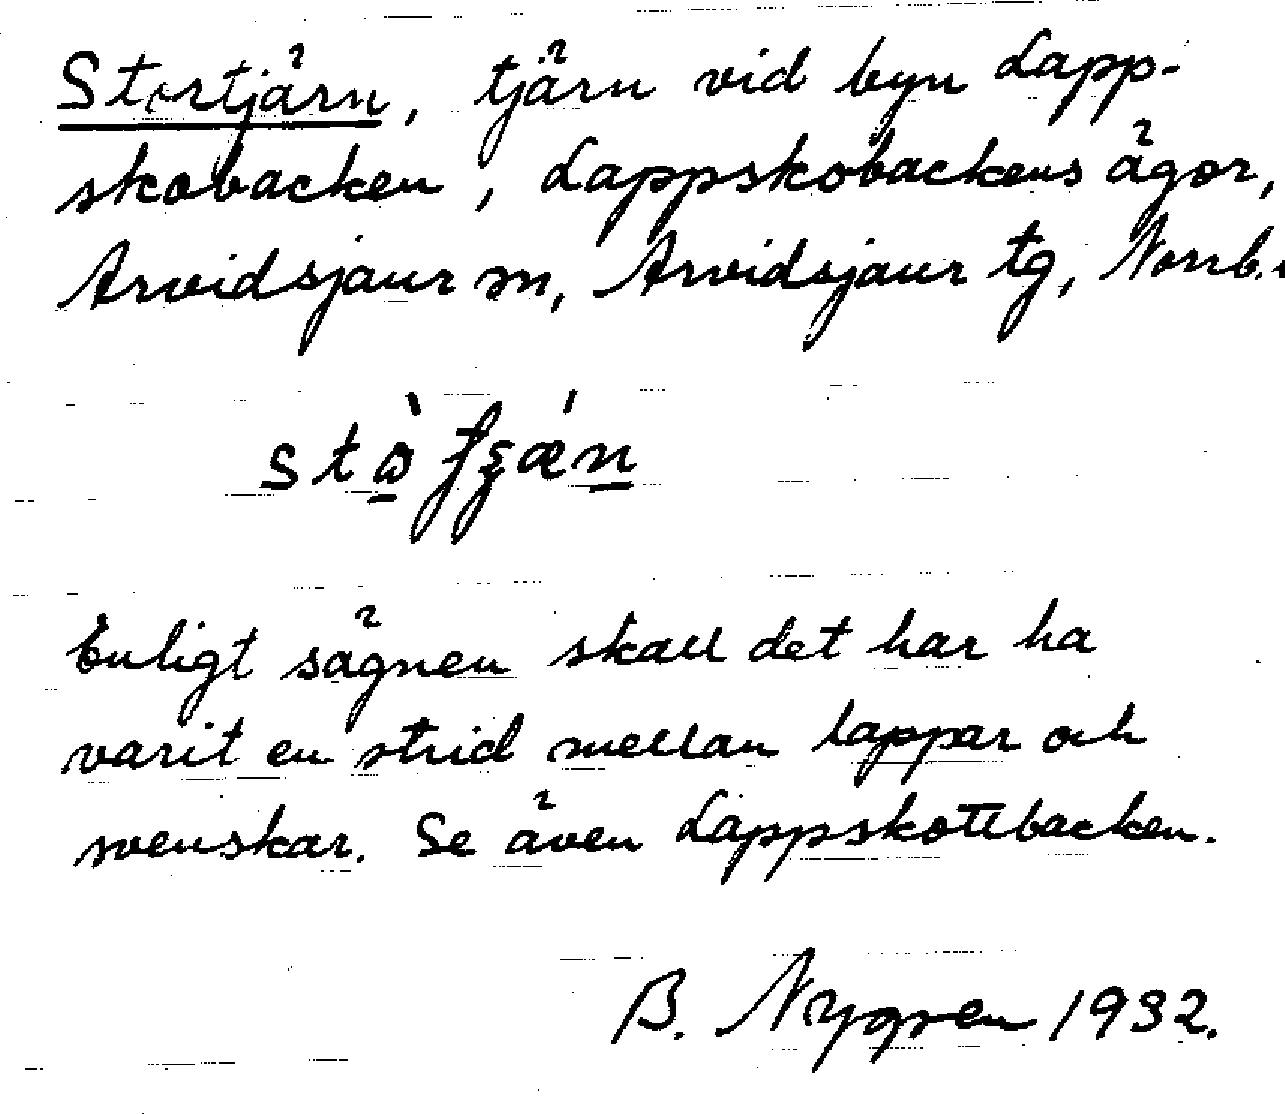 Stortjärn, tjärn vid byn Lapp-
skobacken, Lappskobackens ägor,
Arvidsjaur sn, Arvidsjaur tg, Norrb.
Enligt sägnen skall det har ha
varit en strid mellan lappar och
svenskar. Se även Lappskottbacken.
B. Nygren 1932.